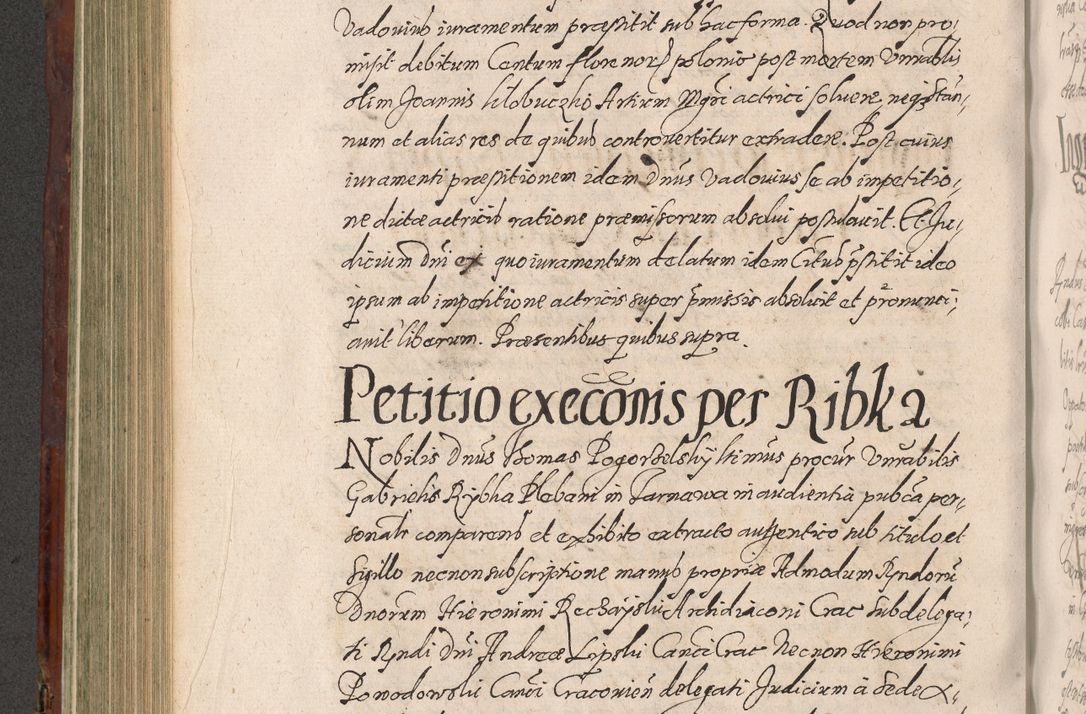 Vadovius iuramentum præstitit sub hac forma. Quod non pro,
misit debitum Centum florenor polonic post mortem Vnrablis
olim Joannis Globuczki Artium Mgri actrici solvere, neq stan,
num et alias res de quibus controvertitur extradere. Post cuius
iuramenti præstitionem idem Dnus Vadovius se ab impetitio,
ne dictæ actricis ratione præmissorum absolui postulauit. Et Ju,
dicium Dni ex quo iuramentum delatum idem Citus pstitit ideo
ipsum ab impetitione actricis super pmissis absoluit et pronunci,
auit liberum. Præsentibus quibus supra.
Petitio execonis per Ribka
Nobilis Dnus Thomas Pogorzelskÿ ltimus procur Vnrabilis
Gabrielis Rybka Plebani in Tarnawa in audientia pubca per,
sonalr comparens et exhibito extracto autentico sub titulo et
sigillo necnon subscriptione manus propriæ Admodum Rndoru
Dnorum Hieronimi Reczaÿski Archidiaconi Crac Subdelega,
ti Rndi Dni Andreæ Lipski Canci Crac Necnon Hieronimi
Powodowski Canci Cracovien delegati Judicium à Sede